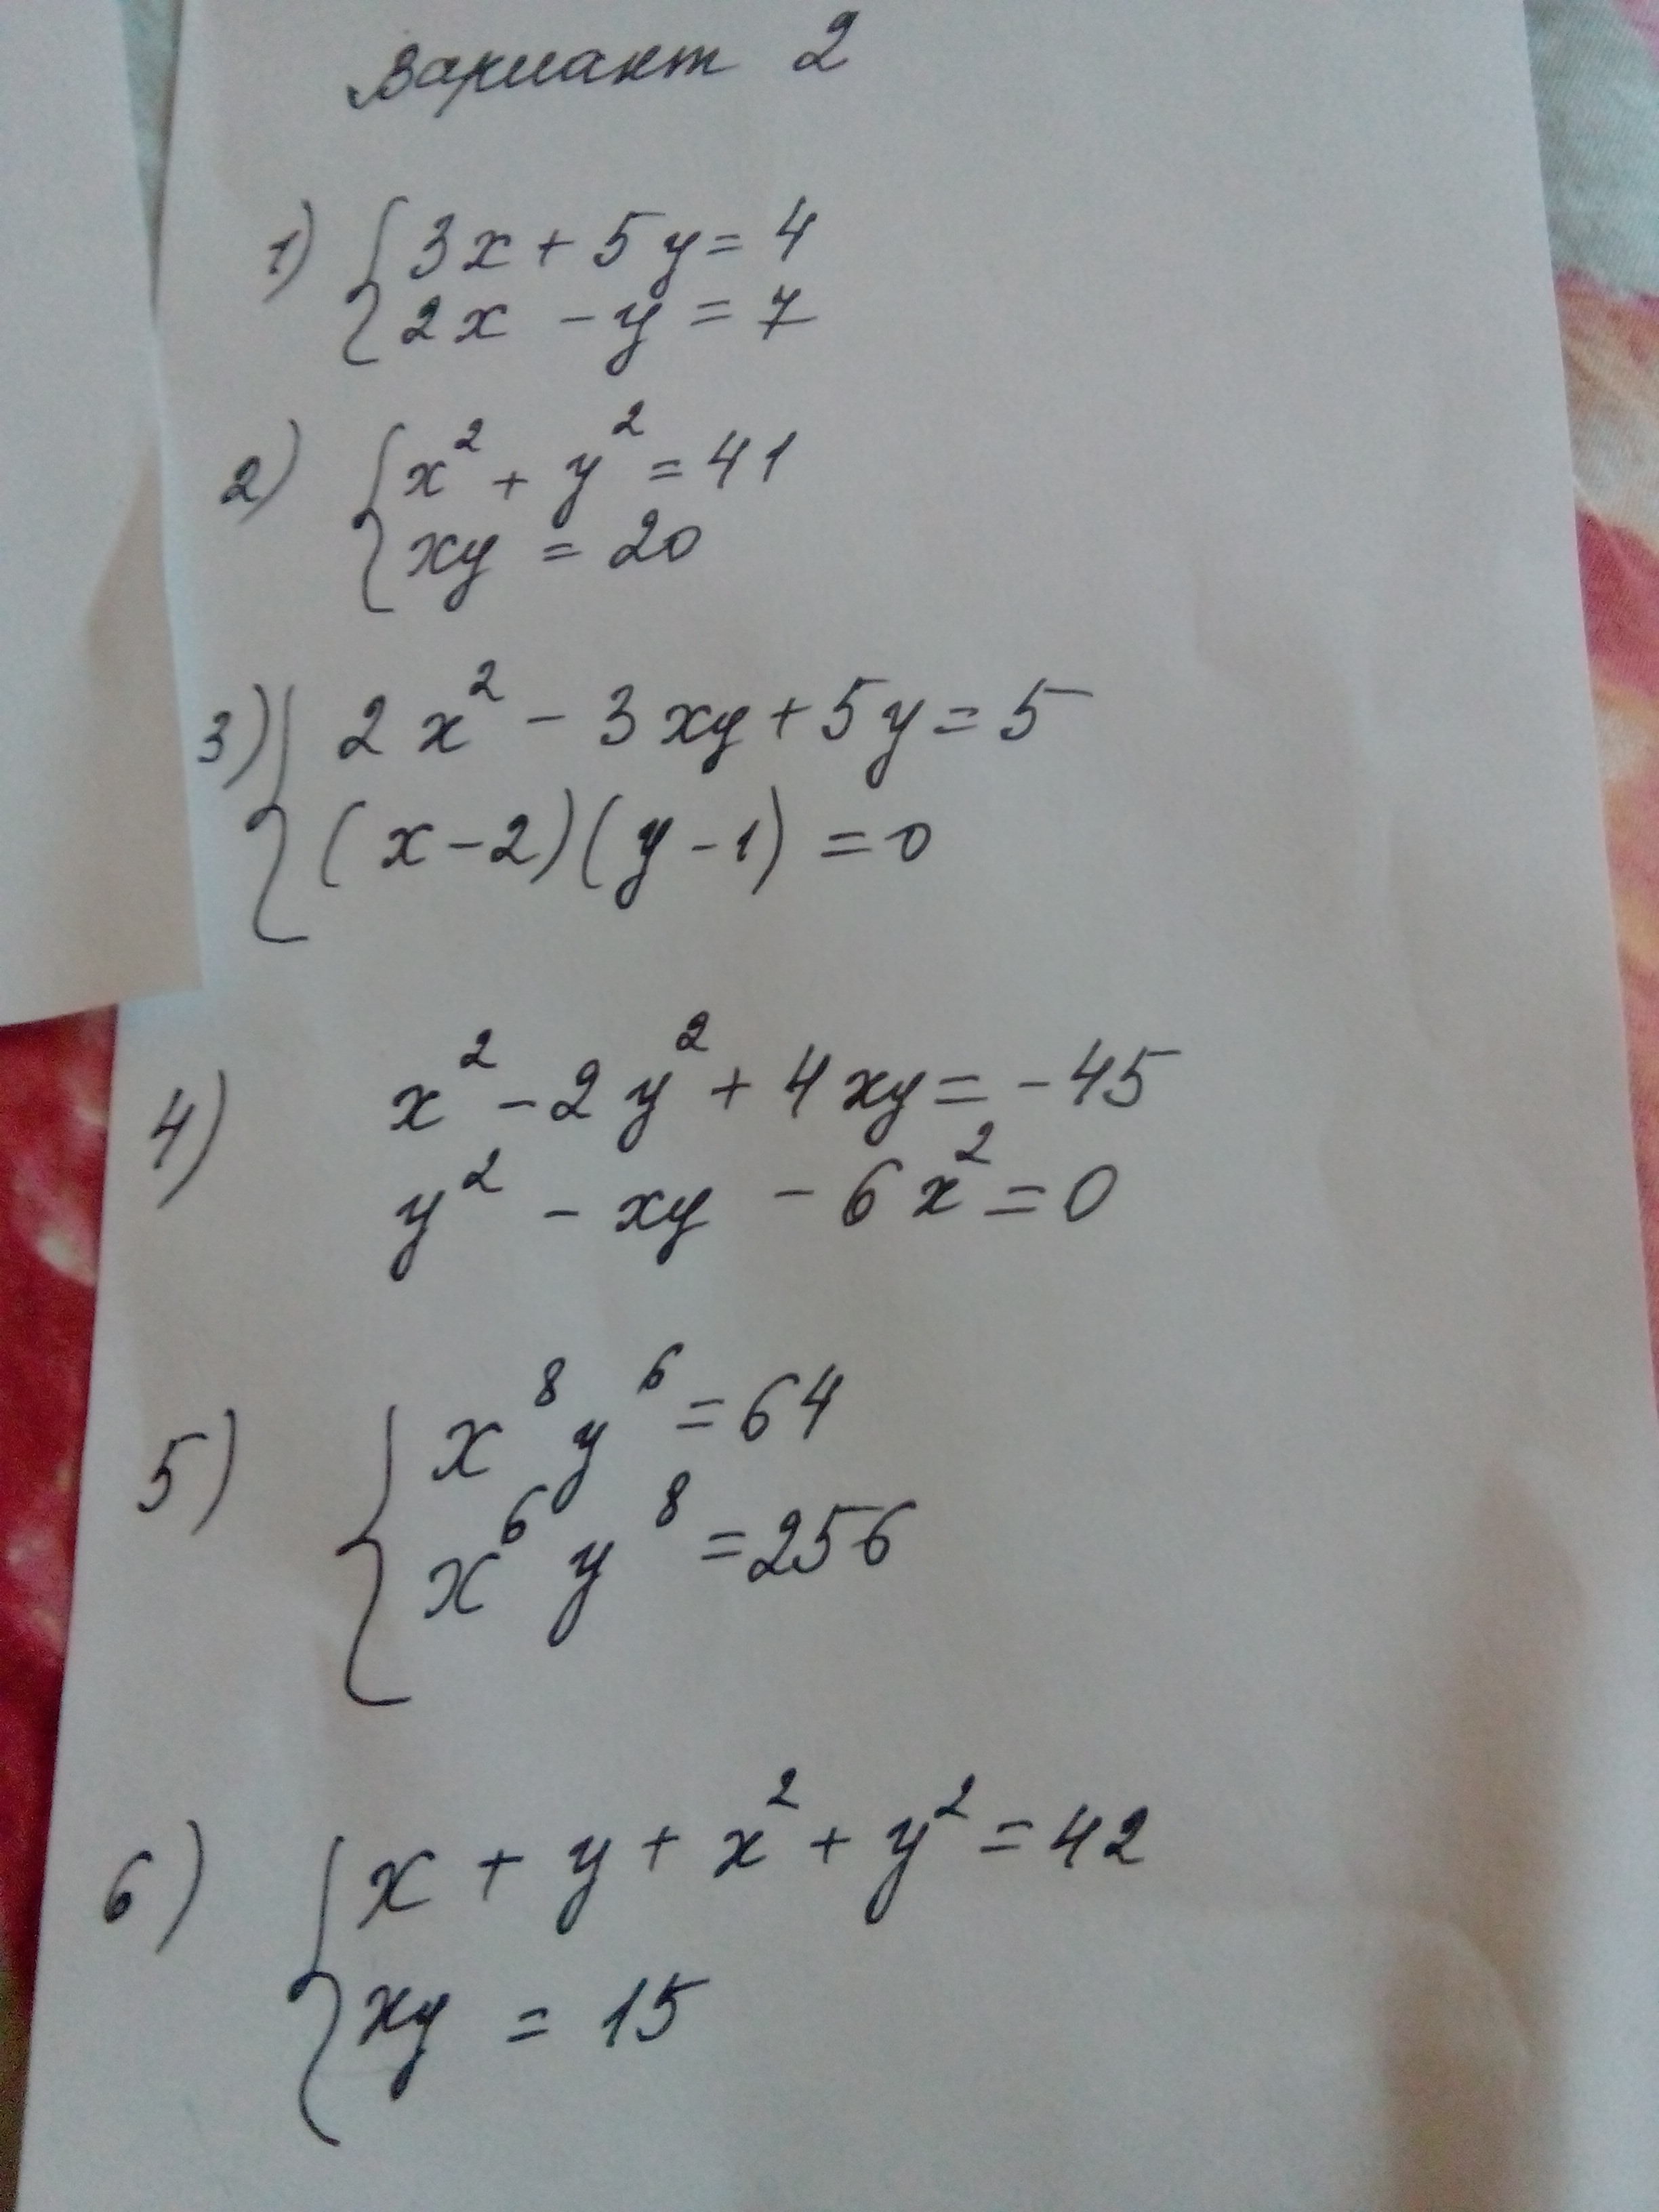 Вариант 2
1) { 3x + 5y = 4
2x - y = 7
2) { x² + y² = 41
xy = 20
3) { 2x² - 3xy + 5y = 5
(x - 2)(y - 1) = 0
4) x² - 2y² + 4xy = -45
y² - xy - 6x² = 0
5) { x⁸y⁶ = 64
x⁶y⁸ = 256
6) { x + y + x² + y² = 42
xy = 15